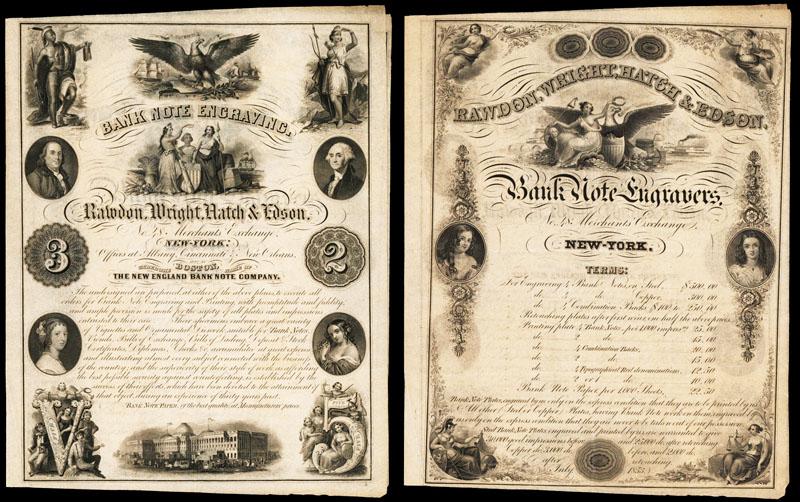 BANK NOTE ENGRAVING.
Rawdon, Wright, Hatch & Edson.
No. 48 Merchants Exchange
NEW-YORK.
Offices at Albany, Cincinnati & New Orleans.
BOSTON,
THE NEW ENGLAND BANK NOTE COMPANY.
3
2
The undersigned are prepared, at either of the above places, to execute all
orders for Bank Note Engraving and Printing, with promptitude and fidelity,
and ample provision is made for the safety of all plates and impressions
entrusted to their care. Their specimens embrace a great variety
of Vignettes and Ornamental Diework suitable for Bank Notes,
Bonds, Bills of Exchange, Bills of Lading, Deposit & Stock
Certificates, Diplomas, Checks &c.
and illustrating almost every subject connected with the business
of the country, and the superiority of their style of work, as affording
the best possible security against counterfeiting, is established by the
success of their efforts, which have been directed to the attainment of
that object, during an experience of thirty years past.
BANK NOTE PAPER, of the best quality, at Manufacturers' prices.
V
5
RAWDON, WRIGHT, HATCH & EDSON.
Bank Note Engravers,
No. 48 Merchants Exchange,
NEW-YORK.
TERMS:
For Engraving 4 Bank Notes, on Steel, $500.00
do. 4 do. Copper, 300.00
do. 4 Combination Backs $100 to 250.00
Retouching plates after first wear, one half the above prices.
Printing plate 4 Bank Notes, per 1,000 impress. 25.00
do. 2 do. 15.00
do. 4 Combination Backs, 20.00
do. 2 do. 15.00
do. 4 Typographical Red denominations, 12.50
do. 2 or 1 do. 10.00
Bank Note Paper, per 1,000 Sheets, 22.50
Bank Note Plates, engraved by us only on the express condition that they are to be printed by us.
All other Steel or Copper Plates, having Bank Note work on them, engraved by
us only on the express condition that they are never to be taken out of our possession.
Steel Bank Note Plates engraved and printed by us are warranted to give
30,000 good impressions before and 25,000 do. after retouching
Copper do. 3,000 do. before, and 2,000 do.
after retouching.
July 1853.